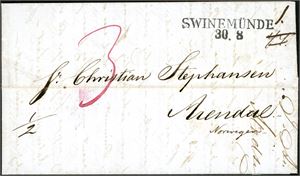 SWINEMÜNDE
30. 8
1.
3
Hr. Christian Stephansen
Arendal
Norwegen
1/2